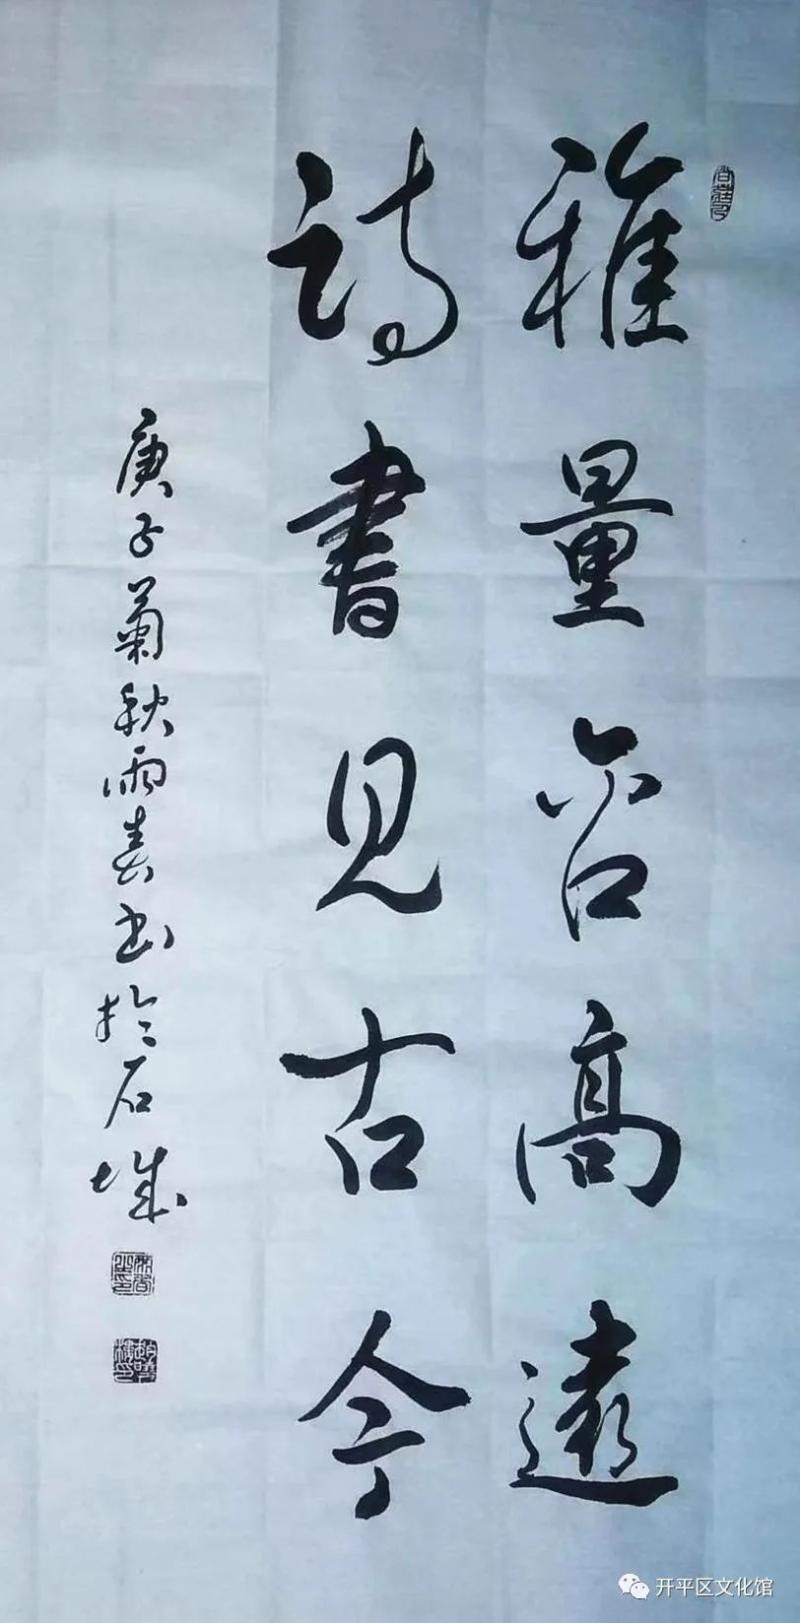 雅量含高遠
詩書見古今
庚子菊秋雨书於石城
开平区文化馆